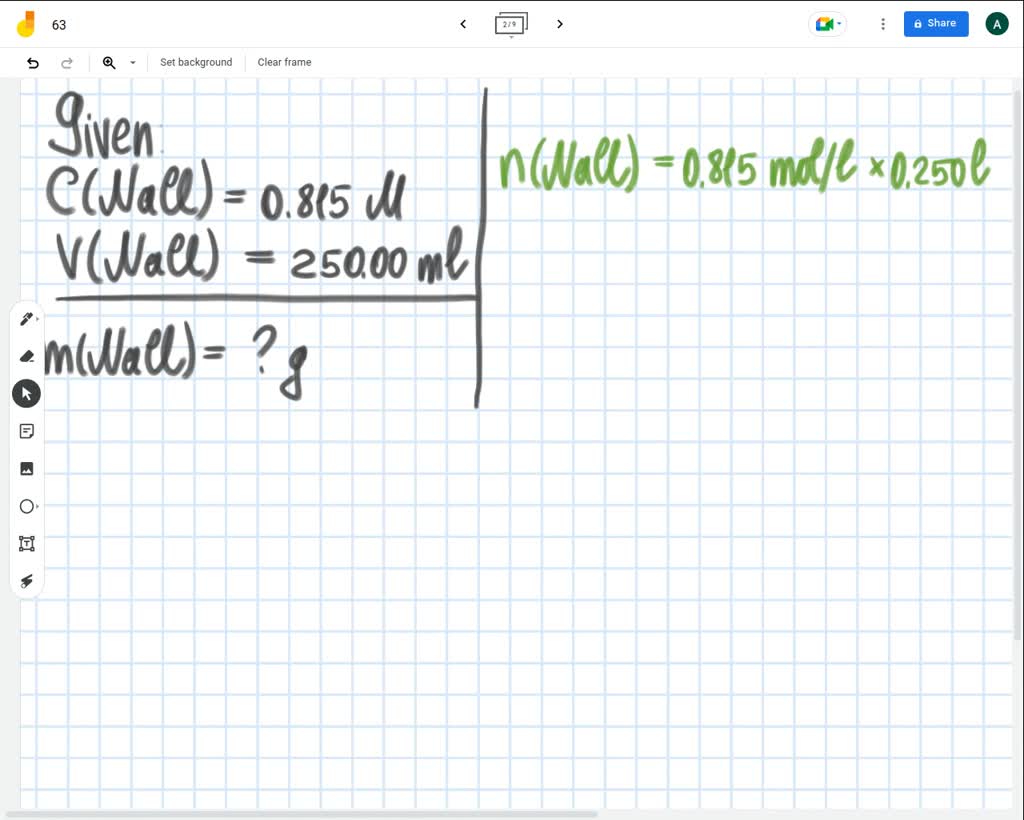 63
2/9
Share
A
Set background
Clear frame
Given:
C(NaCl) = 0.815 M
V(NaCl) = 250.00 ml
m(NaCl) = ? g
n(NaCl) = 0.815 mol/l × 0.250 l